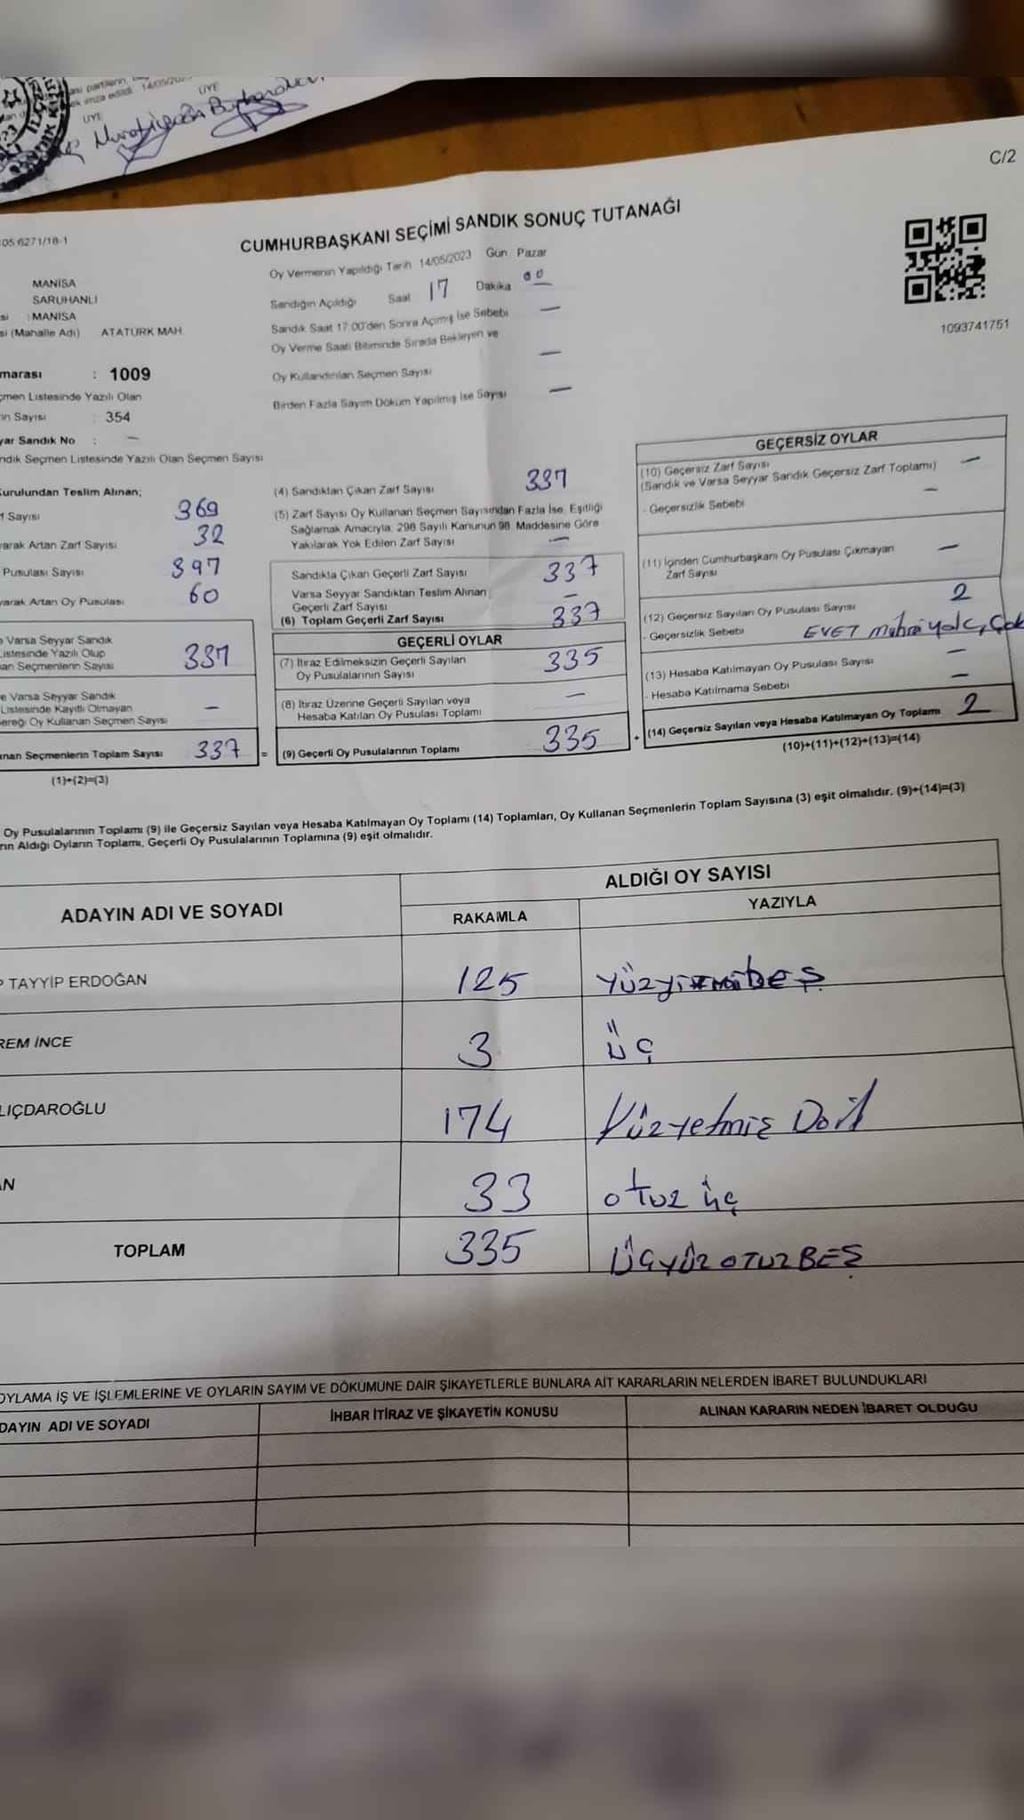 14/05/202
ÜYE
ÜYE
C/2
05 6271/18-1
CUMHURBAŞKANI SEÇİMİ SANDIK SONUÇ TUTANAĞI
Oy Vermenin Yapıldığı Tarih 14/05/2023 Gün Pazar
MANİSA
SARUHANLI
Sandığın Açıldığı Saat 17 Dakika 00
: MANİSA
Sandık Saat 17:00'den Sonra Açılmış İse Sebebi —
si (Mahalle Adı) ATATÜRK MAH.
Oy Verme Saati Bitiminde Sırada Bekleyen ve
Oy Kullandırılan Seçmen Sayısı —
1093741751
marası : 1009
Birden Fazla Sayım Döküm Yapılmış İse Sayısı —
çmen Listesinde Yazılı Olan
n Sayısı : 354
yar Sandık No : —
ndık Seçmen Listesinde Yazılı Olan Seçmen Sayısı
urulundan Teslim Alınan;
f Sayısı 369
arak Artan Zarf Sayısı 32
Pusulası Sayısı 397
arak Artan Oy Pusulası 60
Varsa Seyyar Sandık
Listesinde Yazılı Olup
an Seçmenlerin Sayısı 337
e Varsa Seyyar Sandık
Listesinde Kayıtlı Olmayan
ereği Oy Kullanan Seçmen Sayısı —
nan Seçmenlerin Toplam Sayısı 337 =
(1)+(2)=(3)
(4) Sandıktan Çıkan Zarf Sayısı 337
(5) Zarf Sayısı Oy Kullanan Seçmen Sayısından Fazla İse, Eşitliği
Sağlamak Amacıyla, 298 Sayılı Kanunun 98. Maddesine Göre
Yakılarak Yok Edilen Zarf Sayısı —
Sandıkta Çıkan Geçerli Zarf Sayısı 337
Varsa Seyyar Sandıktan Teslim Alınan
Geçerli Zarf Sayısı —
(6) Toplam Geçerli Zarf Sayısı 337
GEÇERLİ OYLAR
(7) İtiraz Edilmeksizin Geçerli Sayılan
Oy Pusulalarının Sayısı 335
(8) İtiraz Üzerine Geçerli Sayılan veya
Hesaba Katılan Oy Pusulası Toplamı —
(9) Geçerli Oy Pusulalarının Toplamı 335 +
GEÇERSİZ OYLAR
(10) Geçersiz Zarf Sayısı
(Sandık ve Varsa Seyyar Sandık Geçersiz Zarf Toplamı) —
- Geçersizlik Sebebi —
(11) İçinden Cumhurbaşkanı Oy Pusulası Çıkmayan
Zarf Sayısı —
(12) Geçersiz Sayılan Oy Pusulası Sayısı 2
- Geçersizlik Sebebi EVET mührü yok, Çok
(13) Hesaba Katılmayan Oy Pusulası Sayısı —
- Hesaba Katılmama Sebebi —
(14) Geçersiz Sayılan veya Hesaba Katılmayan Oy Toplamı 2
(10)+(11)+(12)+(13)=(14)
Oy Pusulalarının Toplamı (9) ile Geçersiz Sayılan veya Hesaba Katılmayan Oy Toplamı (14) Toplamları, Oy Kullanan Seçmenlerin Toplam Sayısına (3) eşit olmalıdır. (9)+(14)=(3)
rın Aldığı Oyların Toplamı, Geçerli Oy Pusulalarının Toplamına (9) eşit olmalıdır.
ADAYIN ADI VE SOYADI
ALDIĞI OY SAYISI
RAKAMLA YAZIYLA
P TAYYİP ERDOĞAN 125 Yüzyirmibeş
REM İNCE 3 üç
LIÇDAROĞLU 174 Yüzyetmiş Dört
AN 33 otuz üç
TOPLAM 335 ÜÇYÜZOTUZBEŞ
OYLAMA İŞ VE İŞLEMLERİNE VE OYLARIN SAYIM VE DÖKÜMÜNE DAİR ŞİKAYETLERLE BUNLARA AİT KARARLARIN NELERDEN İBARET BULUNDUKLARI
DAYIN ADI VE SOYADI İHBAR İTİRAZ VE ŞİKAYETİN KONUSU ALINAN KARARIN NEDEN İBARET OLDUĞU